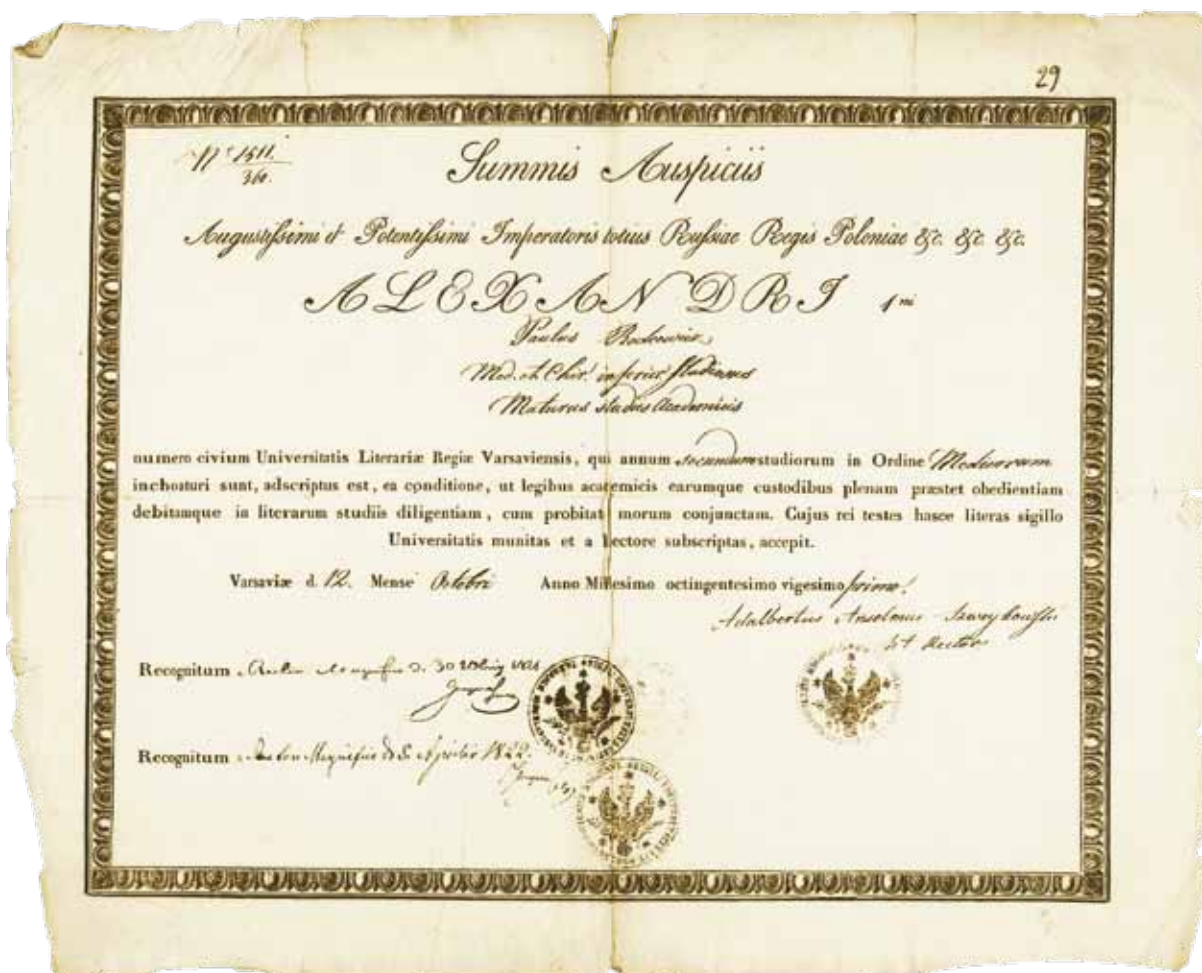 29
Nº 1511.
360.
Summis Auspiciis
Augustissimi et Potentissimi Imperatoris totius Russiae Regis Poloniae &c. &c. &c.
ALEXANDRI 1mi
Paulus
Med. et Chir.
Maturus studiis Academicis
numero civium Universitatis Literariæ Regiæ Varsaviensis, qui annum secundum studiorum in Ordine Medicorum
inchoaturi sunt, adscriptus est, ea conditione, ut legibus academicis earumque custodibus plenam præstet obedientiam
debitamque in literarum studiis diligentiam, cum probitate morum conjunctam. Cujus rei testes hasce literas sigillo
Universitatis munitas et a Rectore subscriptas, accepit.
Varsaviæ d. 12. Mense Octobri Anno Millesimo octingentesimo vigesimo primo.
Adalbertus Anselmus
Rector
Recognitum
Recognitum 1822.